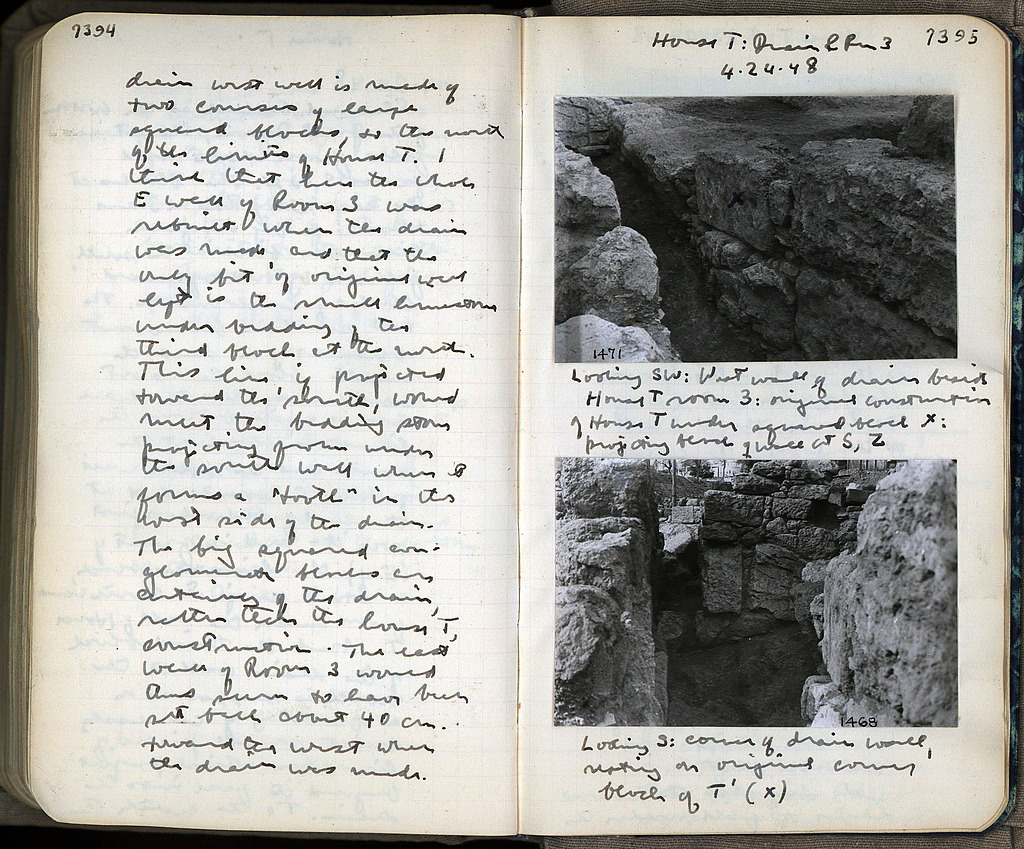 7394
drain west wall is made of
two courses of large
squared blocks, to the north
of the limits of House T. I
think that here the whole
E wall of Room 3 was
rebuilt when the drain
was made and that the
only bit of original wall
left is the small limestone
under bedding of the
third block at the north.
This line, if projected
toward the south, would
meet the bedding stone
projecting from under
the south wall where it
forms a "tooth" in the
west side of the drain.
The big squared con-
glomerate blocks are
certainly of the drain,
rather than the house T,
construction. The east
wall of Room 3 would
thus seem to have been
set back about 40 cm.
toward the west when
the drain was made.
House T: Drain & Rm 3
7395
4.24.48
1471
Looking SW: West wall of drain beside
House T room 3: original construction
of House T under squared block X:
projecting block of wall at S, Z
1468
Looking S: corner of drain wall,
resting on original corner
block of T' (X)